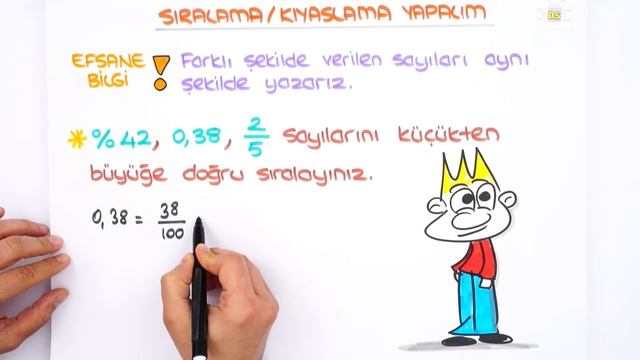 SIRALAMA/KIYASLAMA YAPALIM
EFSANE BİLGİ ! Farklı şekilde verilen sayıları aynı
şekilde yazarız.
* %42, 0,38, 2/5 sayılarını küçükten
büyüğe doğru sıralayınız.
0,38 = 38/100
DS